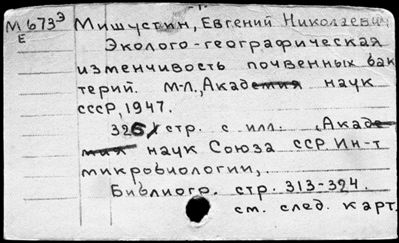 М 673э Мишустин, Евгений Николаевич
Е Эколого-географическая
изменчивость почвенных бак
терий. М-Л., Академия наук
СССР, 1947.
326 стр. с илл. (Академия
наук Союза ССР. Ин-т
микробиологии,.
Библиогр. стр. 313-324.
см. след. карт.